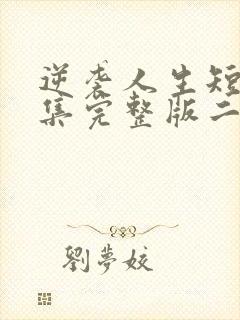 逆袭人生短
集完整版二
劉夢姣